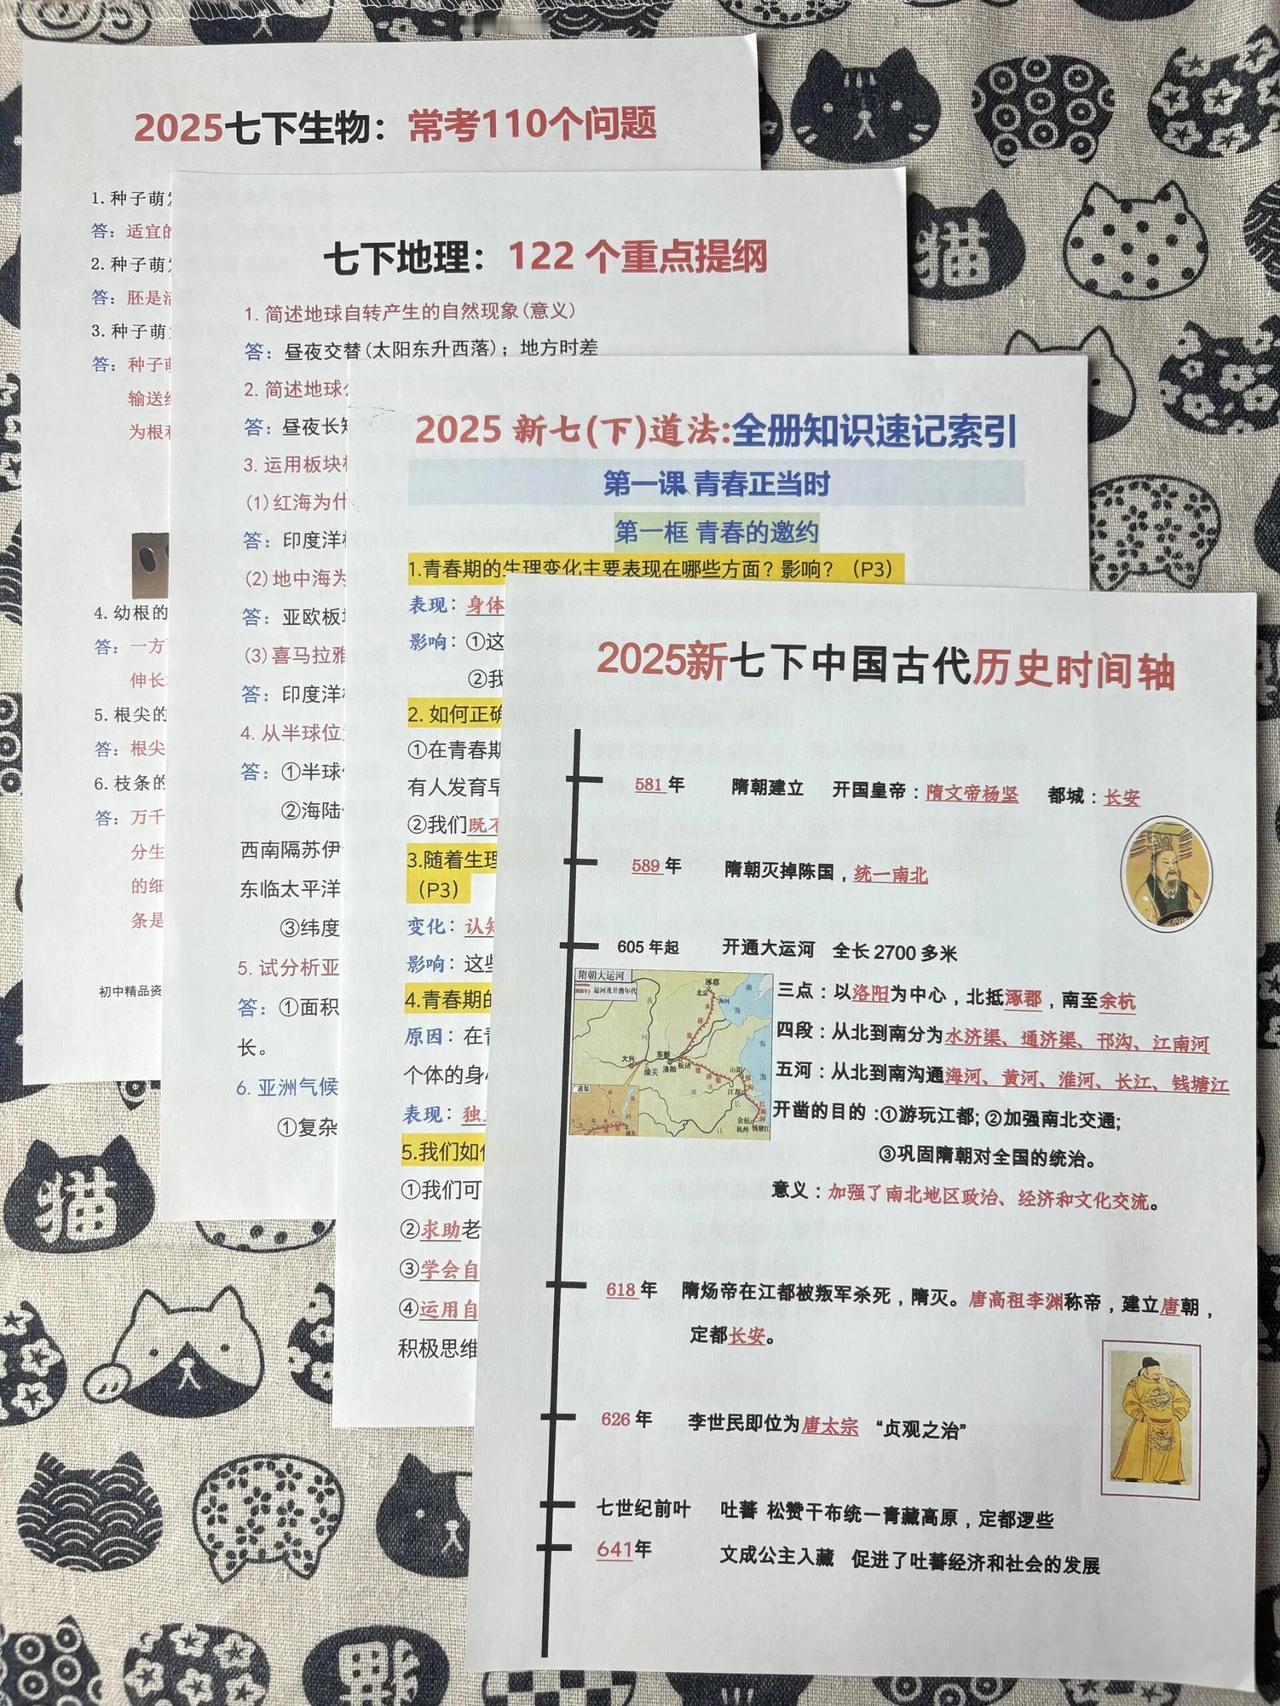 2025七下生物：常考110个问题
1.种子萌发
答：适宜的
2.种子萌发
答：胚是活
3.种子萌
答：种子萌
输送给
为根和
4.幼根的
答：一方
伸长
5.根尖的
答：根尖
6.枝条的
答：万千
分生
的细
条是
初中精品资
七下地理：122 个重点提纲
1.简述地球自转产生的自然现象(意义)
答：昼夜交替(太阳东升西落)；地方时差
2.简述地球公
答：昼夜长短
3.运用板块构
(1)红海为什
答：印度洋板
(2)地中海为
答：亚欧板块
(3)喜马拉雅
答：印度洋板
4.从半球位置
答：①半球位
②海陆
西南隔苏伊
东临太平洋
③纬度
5.试分析亚
答：①面积
长。
6.亚洲气候
①复杂
2025 新七(下)道法:全册知识速记索引
第一课 青春正当时
第一框 青春的邀约
1.青春期的生理变化主要表现在哪些方面？影响？（P3）
表现：身体
影响：①这
②我
2. 如何正确
①在青春期
有人发育早
②我们既不
3.随着生理
（P3）
变化：认知
影响：这些
4.青春期的
原因：在青
个体的身心
表现：独立
5.我们如何
①我们可
②求助老
③学会自
④运用自
积极思维
2025新七下中国古代历史时间轴
581 年 隋朝建立 开国皇帝：隋文帝杨坚 都城：长安
589 年 隋朝灭掉陈国，统一南北
605 年起 开通大运河 全长 2700 多米
隋朝大运河
运河及开凿年代
涿郡
北京
大兴
潼关
东都
洛阳
板渚
山阳
江都
余杭
杭州
钱塘江
三点：以洛阳为中心，北抵涿郡，南至余杭
四段：从北到南分为水济渠、通济渠、邗沟、江南河
五河：从北到南沟通海河、黄河、淮河、长江、钱塘江
开凿的目的：①游玩江都; ②加强南北交通;
③巩固隋朝对全国的统治。
意义：加强了南北地区政治、经济和文化交流。
618 年 隋炀帝在江都被叛军杀死，隋灭。唐高祖李渊称帝，建立唐朝，
定都长安。
626 年 李世民即位为唐太宗 “贞观之治”
七世纪前叶 吐蕃 松赞干布统一青藏高原，定都逻些
641年 文成公主入藏 促进了吐蕃经济和社会的发展
猫
猫